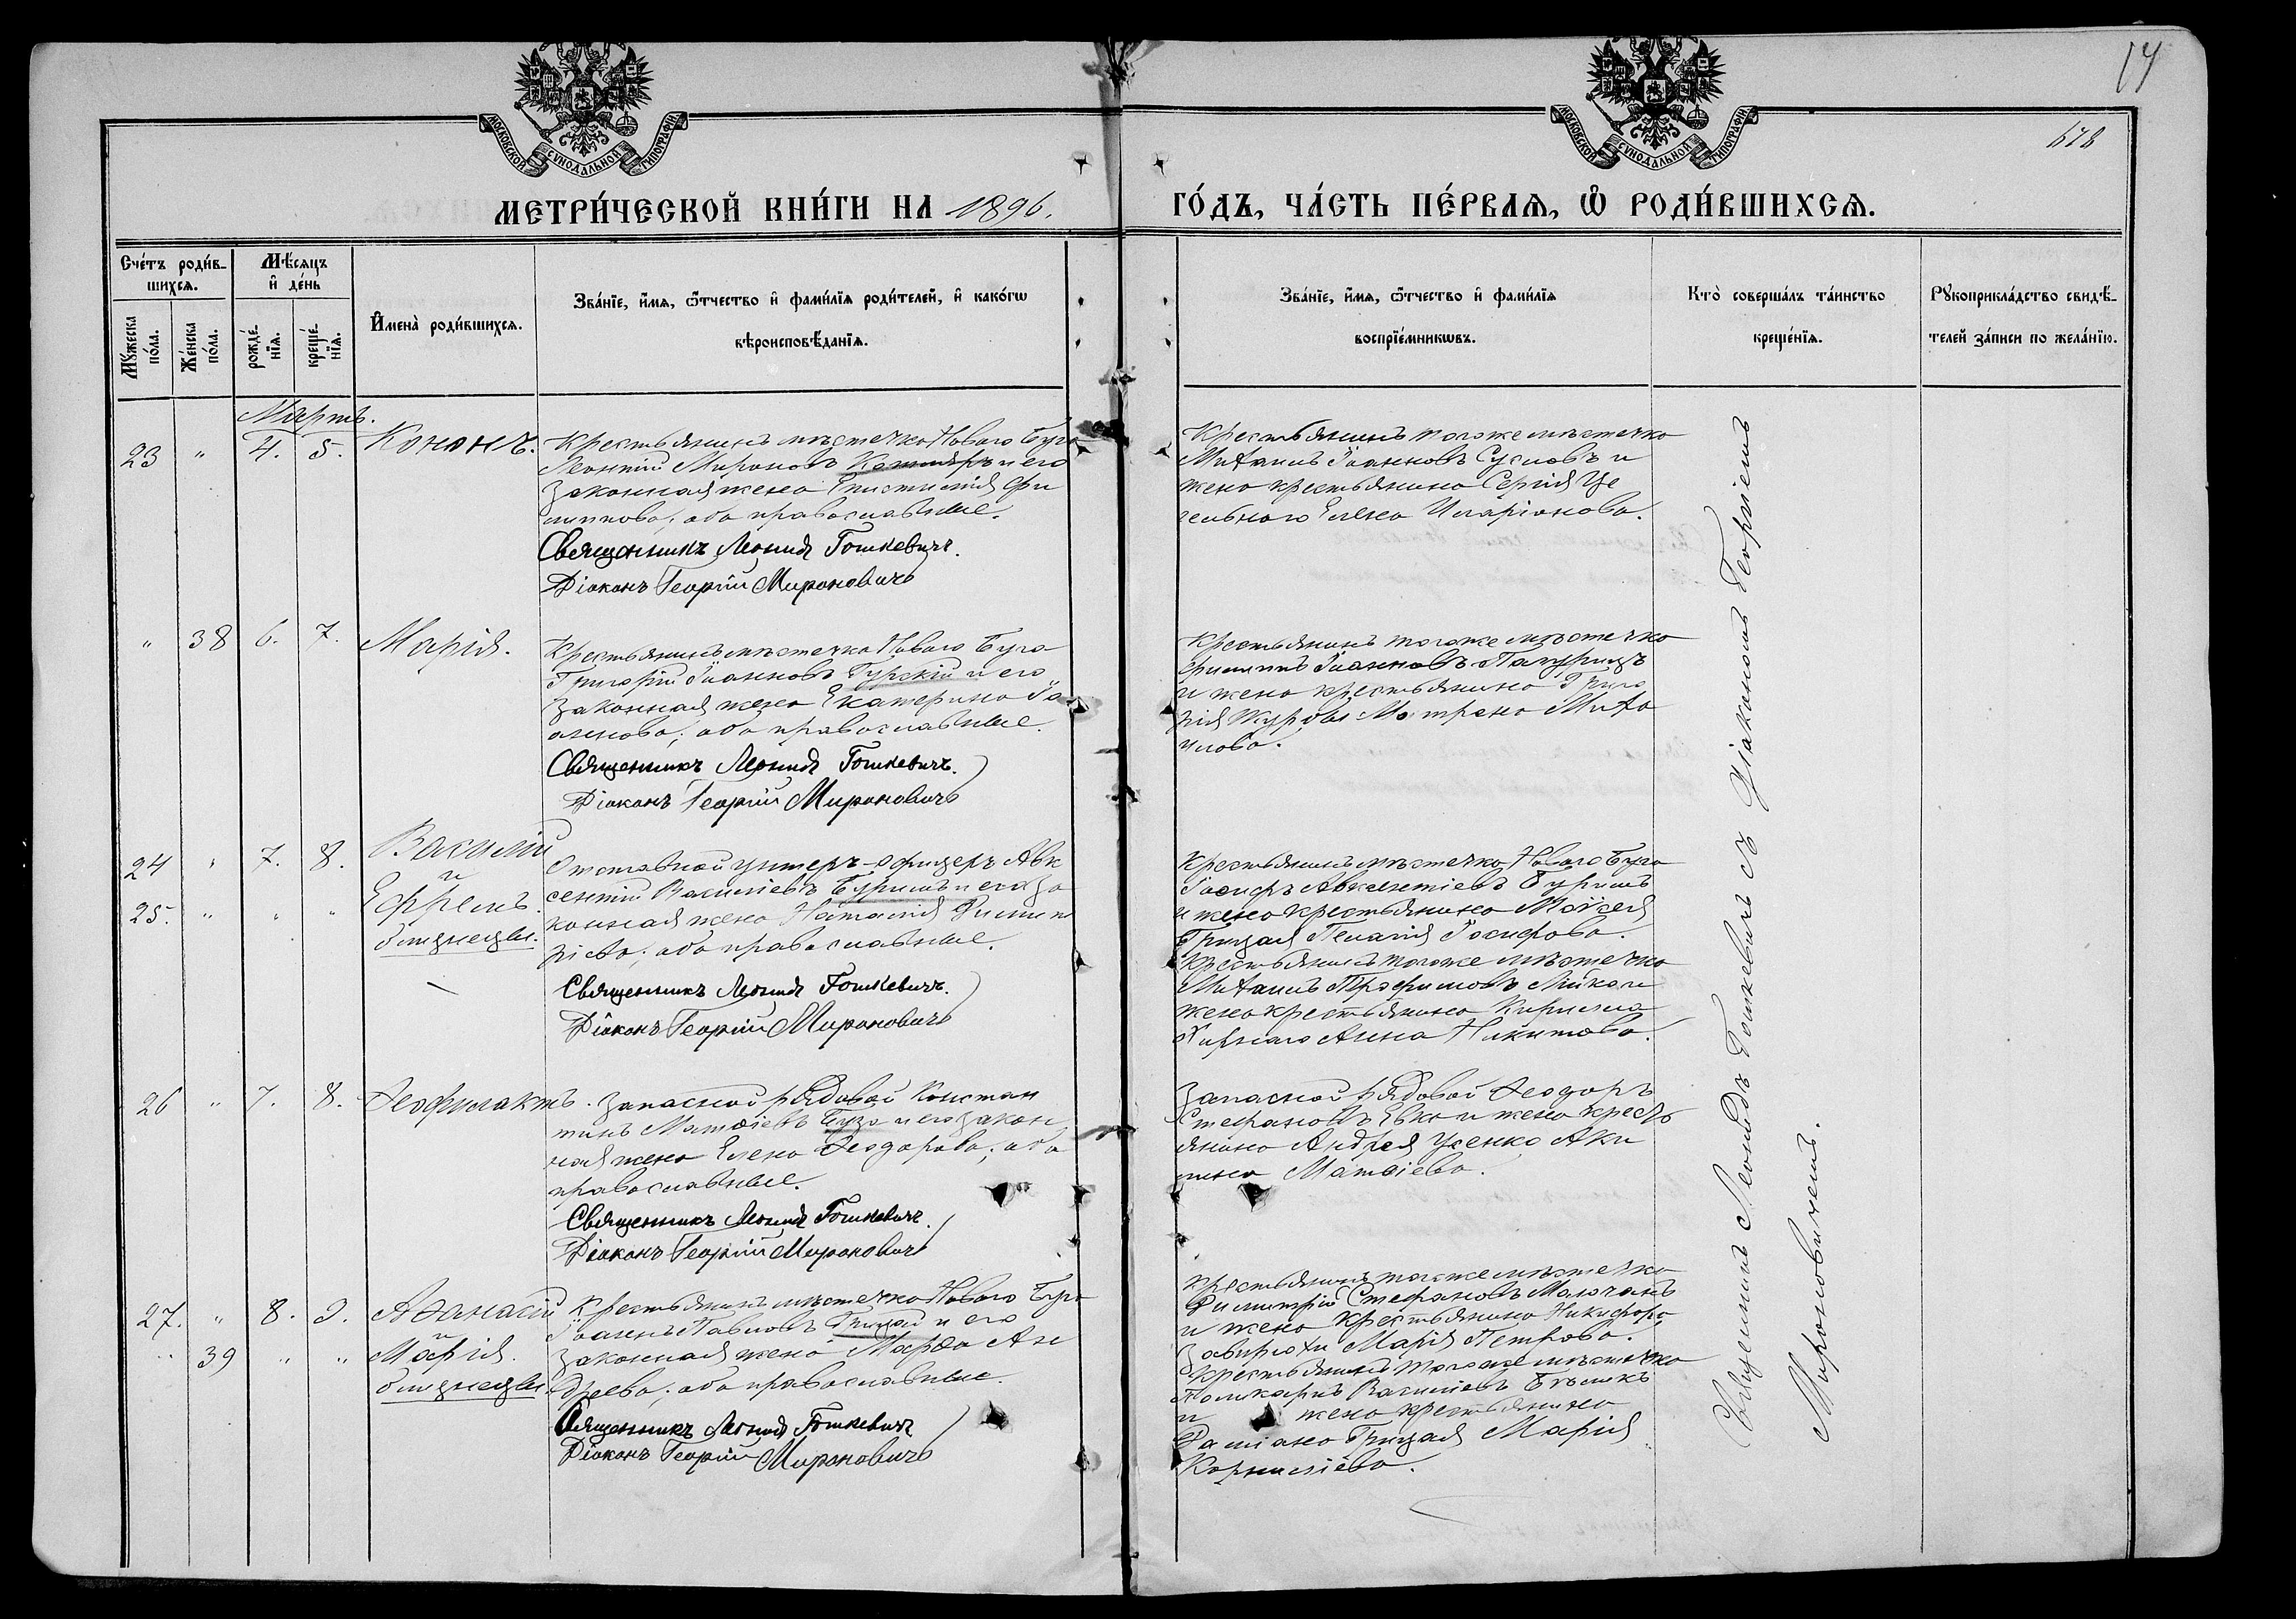 14
678
МОСКОВСКОЙ СУНОДАЛЬНОЙ ТИПОГРАФІИ
МОСКОВСКОЙ СУНОДАЛЬНОЙ ТИПОГРАФІИ
МЕТРИ́ЧЕСКОЙ КНИ́ГИ НА 1896.
ГО́ДЪ, ЧА́СТЬ ПЕ́РВАѦ, Ѽ РОДИ́ВШИХСѦ.
Сче́тъ роди́в-
шихсѧ.
Мѣ́сѧцъ
и҆ де́нь
Мꙋ́жеска
по́ла.
Же́нска
по́ла.
рожде́-
нїѧ.
креще́-
нїѧ.
И҆мена̀ роди́вшихсѧ.
Зва́нїе, и҆́мѧ, ѻ҆́тчество и҆ фами́лїѧ роди́телей, и҆ како́гѡ
вѣроисповѣ́данїѧ.
Зва́нїе, и҆́мѧ, ѻ҆́тчество и҆ фами́лїѧ
воспрїе́мникѡвъ.
Кто̀ соверша́лъ та́инство
креще́нїѧ.
Рꙋкоприкла́дство свидѣ́-
телей за́писи по жела́нїю.
Мартъ.
23 " 4. 5. Кононъ.
Крестьянинъ мѣстечка Новаго Буга
Леонтій Мироновъ и его
законная жена Епистимія Фи
липпова, оба православные.
Священникъ Леонидъ Гошкевичъ.
Діаконъ Георгій Мироновичъ
Крестьянинъ тогоже мѣстечка
Михаилъ Іоанновъ Сусловъ и
жена крестьянина Сергія Це
гельнаго Елена Иларіонова.
" 38 6. 7. Марія.
Крестьянинъ мѣстечка Новаго Буга
Григорій Іоанновъ Гурскій и его
законная жена Екатерина Іо
аннова; оба православные.
Священникъ Леонидъ Гошкевичъ.
Діаконъ Георгій Мироновичъ
Крестьянинъ тогоже мѣстечка
Филиппъ Іоанновъ Папурицъ
и жена крестьянина Григо
рія Журбы Матрена Миха
илова.
24 " 7. 8. Василій
и
25. " " " Ефремъ.
близнецы.
Отставной унтеръ-офицеръ Авк
сентій Василіевъ Буримъ и его за
конная жена Наталія Димит
ріева; оба православные.
Священникъ Леонидъ Гошкевичъ.
Діаконъ Георгій Мироновичъ
Крестьянинъ мѣстечка Новаго Буга
Іосифъ Авксентіевъ Буримъ
и жена крестьянина Моѵсея
Грицая Пелагія Іосифова.
Крестьянинъ тогоже мѣстечка
Михаилъ Трофимовъ и
жена крестьянина Кирилла
Анна Никитова.
26 " 7. 8. Ѳеофилактъ.
Запасной рядовой Констан
тинъ Матѳіевъ Буза и его закон
ная жена Елена Ѳеодорова; оба
православные.
Священникъ Леонидъ Гошкевичъ.
Діаконъ Георгій Мироновичъ
Запасной рядовой Ѳеодоръ
Стефановъ Евко и жена кресть
янина Андрея Усенко Аки
лина Матѳіева.
27. " 8. 9. Аѳанасій
и
" 39 " " Марія.
близнецы.
Крестьянинъ мѣстечка Новаго Буга
Іоаннъ Павловъ Грицай и его
законная жена Марѳа Ан
дреева; оба православные.
Священникъ Леонидъ Гошкевичъ
Діаконъ Георгій Мироновичъ
Крестьянинъ тогоже мѣстечка
Димитрій Стефановъ Молочанъ
и жена крестьянина Никифора
Завирюхи Марія Петрова.
Крестьянинъ тогоже мѣстечка
Поликарпъ Василіевъ Бѣликъ
и жена крестьянина
Даміана Грицая Марія
Корниліева.
Священникъ Леонидъ Гошкевичъ съ Діакономъ Георгіемъ
Мироновичемъ.